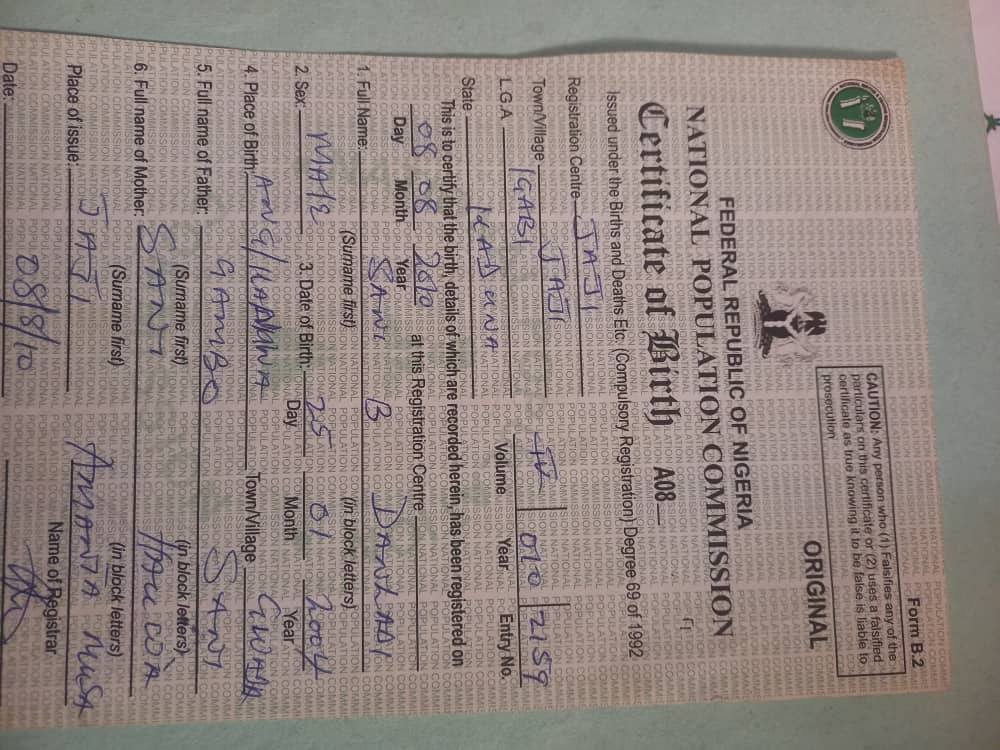 Form B.2
CAUTION: Any person who (1) Falsifies any of the
particulars on this certificate or (2) uses a falsified
certificate as true knowing it to be false is liable to
prosecution
ORIGINAL
FEDERAL REPUBLIC OF NIGERIA
NATIONAL POPULATION COMMISSION
Certificate of Birth A08
Issued under the Births and Deaths Etc. (Compulsory Registration) Degree 69 of 1992
Registration Centre JAJI
Town/Village JAJI
L.G.A IGABI IV 010 2159
State KADUNA Volume Year Entry No.
This is to certify that the birth, details of which are recorded herein, has been registered on
08 08 2010 at this Registration Centre
Day Month Year
1. Full Name: SANI B DANLADI
(Surname first) (in block letters)
2. Sex: MALE 3. Date of Birth: 25 01 2004
Day Month Year
4. Place of Birth: ANG/ Town/Village
5. Full name of Father: GAMBO SANI
(Surname first) (in block letters)
6. Full name of Mother: SANI
(Surname first) (in block letters)
Place of issue: JAJI MUSA
Name of Registrar
Date: 08/8/10